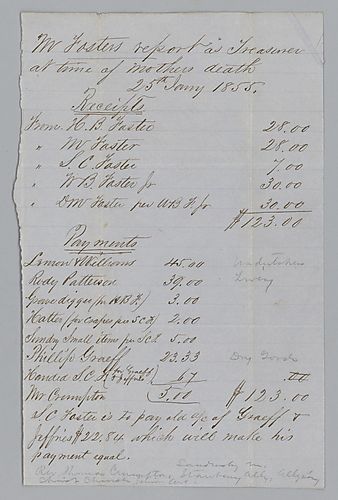 M Fosters report as Treasurer
at time of Mothers death
25th Jany 1855.
Receipts
From H. B. Foster 28.00
" M Foster 28.00
" S. C. Foster 7.00
" W B. Foster Jr 30.00
" D M Foster per W B F. Jr 30.00
$123.00
Payments
Lemon & Williams 45.00 Undertakers
Rody Patterson 39.00 Livery
Gravedigger (per H B F.) 3.00
Hatter (for Crapes per S C F) 2.00
Sundry Small items per S C F. 5.00
Phillip Graeff 23.33 Dry Goods
Handed S. C. F. (for Graeff & Jeffries) 67
Mr Crumpton 5.00 $123.00
S C Foster is to pay old a/c of Graeff &
Jeffries $22.84 which will make his
payment equal.
Rev. Thomas Crumpton, Strawberry Alley, Allegheny
Christ Church